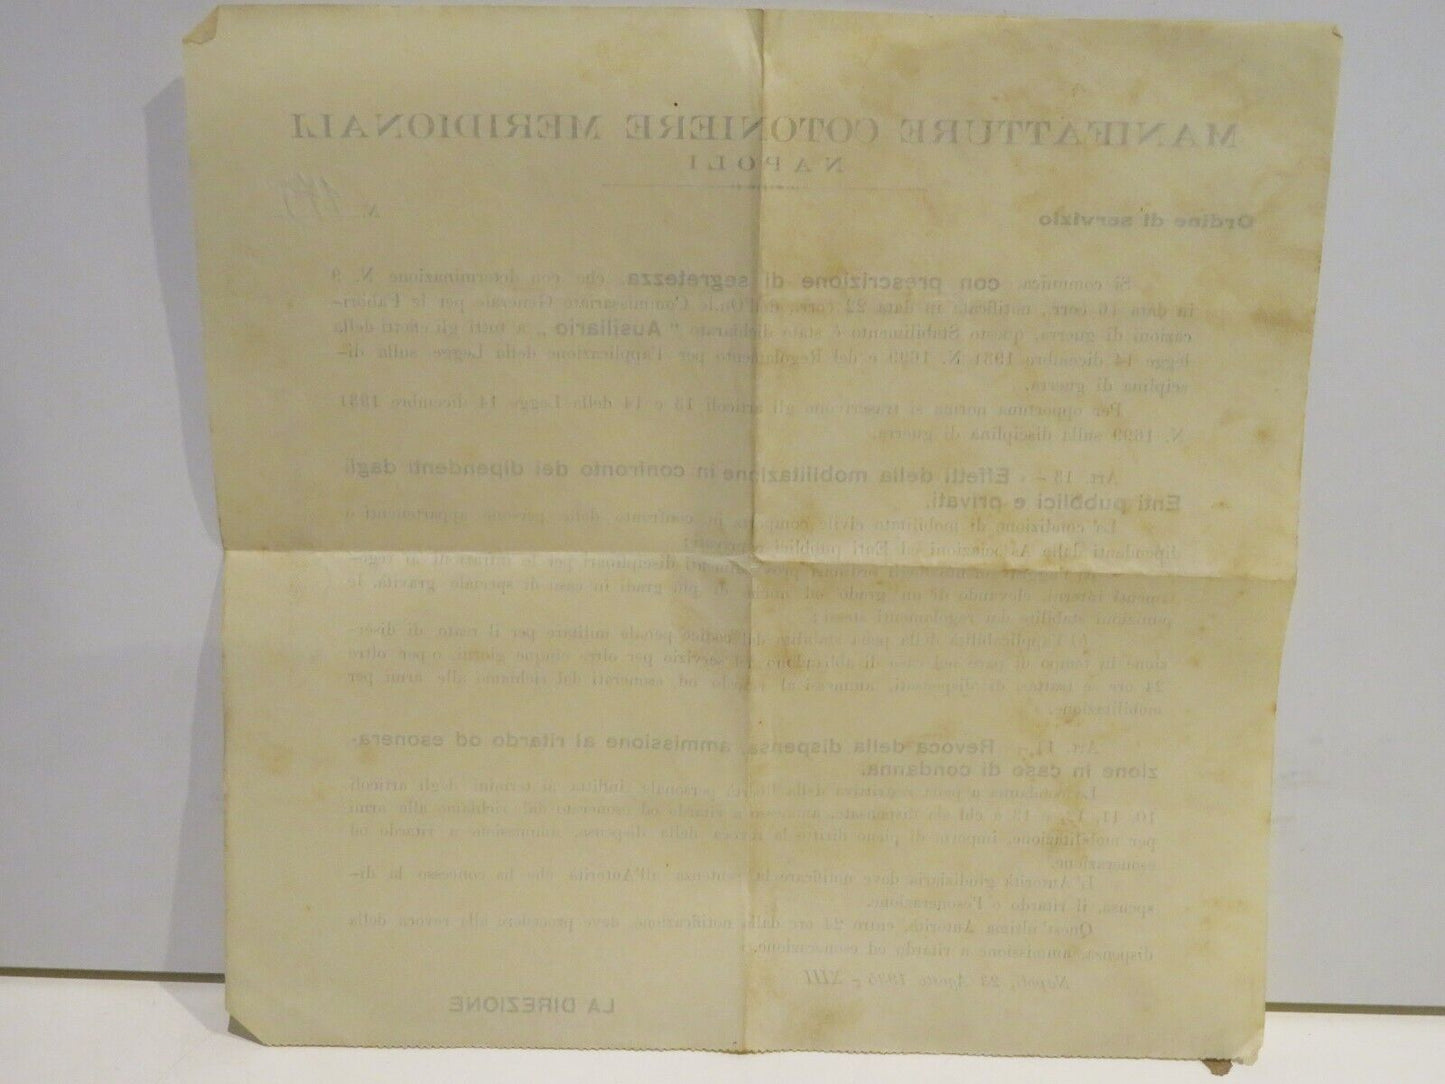 MANIFATTURE COTONIERE MERIDIONALI
NAPOLI
N.
Ordine di servizio
Si comunica, con prescrizione di segretezza, che con determinazione N. 9
in data 16 corr., notificata in data 22 corr. dall'On.le Commissariato Generale per le Fabbri-
cazioni di guerra, questo Stabilimento è stato dichiarato " Ausiliario „ a tutti gli effetti della
legge 14 dicembre 1931 N. 1699 e del Regolamento per l'applicazione della Legge sulla di-
sciplina di guerra.
Per opportuna norma si trascrivono gli articoli 13 e 14 della Legge 14 dicembre 1931
N. 1699 sulla disciplina di guerra.
Art. 13 - « Effetti della mobilitazione in confronto dei dipendenti dagli
Enti pubblici e privati.
La condizione di mobilitato civile comporta in confronto delle persone appartenenti o
dipendenti dalle Associazioni ed Enti pubblici o privati
disciplinari per le infrazioni ai rego-
lamenti interni, elevando di un grado ed anche di più gradi in casi di speciale gravità, le
punizioni stabilite dai regolamenti stessi;
b) l'applicabilità della pena stabilita dal codice penale militare per il reato di diser-
zione in tempo di pace nel caso di abbandono del servizio per oltre cinque giorni, o per oltre
24 ore se trattasi di dispensati, ammessi al ritardo od esonerati dal richiamo alle armi per
mobilitazione.
Art. 14 - Revoca della dispensa, ammissione al ritardo od esonera-
zione in caso di condanna.
La condanna a pena restrittiva della libertà personale inflitta ai termini degli articoli
10, 11, 12, e 13 a chi sia dispensato, ammesso a ritardo od esonerato dal richiamo alle armi
per mobilitazione, importa di pieno diritto la revoca della dispensa, ammissione a ritardo od
esonerazione.
L'Autorità giudiziaria deve notificare la sentenza all'Autorità che ha concesso la di-
spensa, il ritardo o l'esonerazione.
Quest'ultima Autorità, entro 24 ore dalla notificazione, deve procedere alla revoca della
dispensa, ammissione a ritardo od esonerazione.
Napoli, 23 Agosto 1935 - XIII
LA DIREZIONE